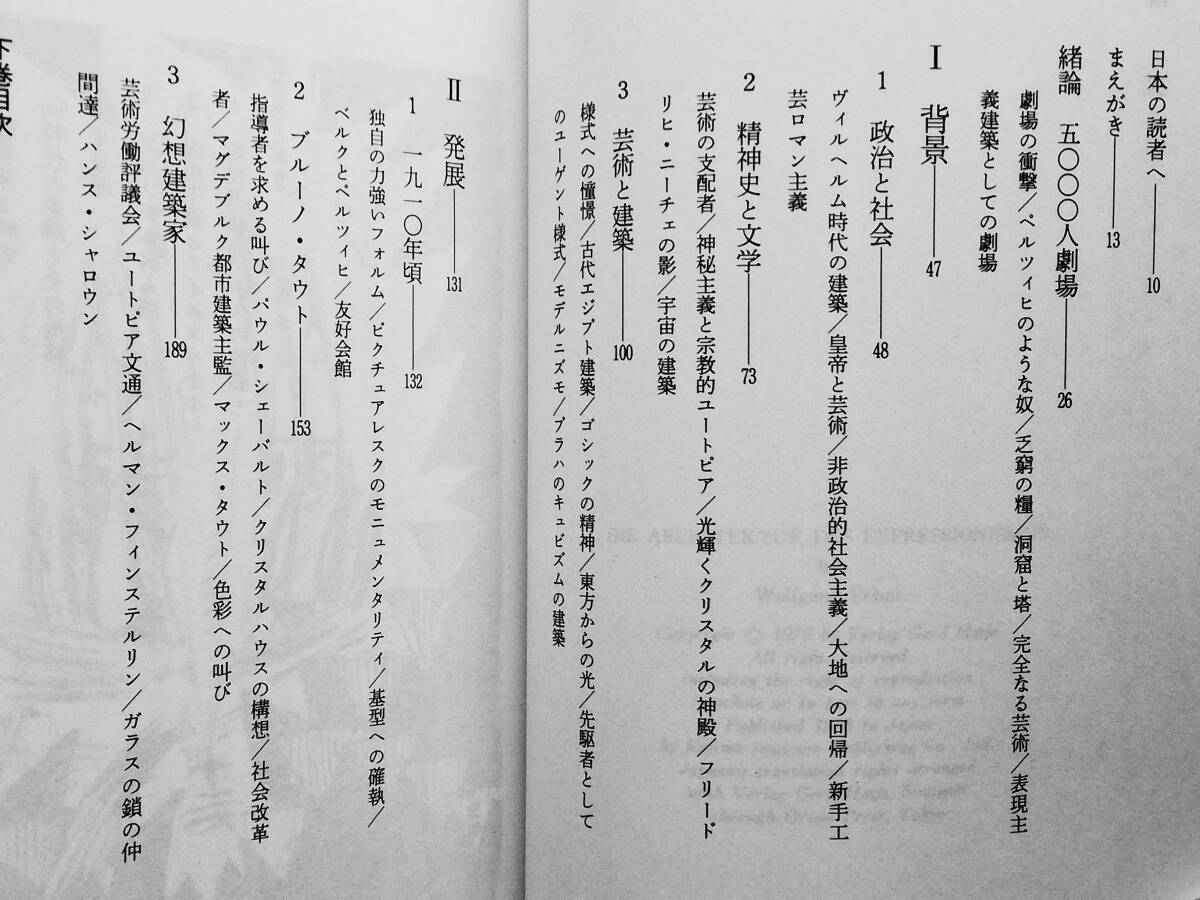 日本の読者へ――10
まえがき――13
緒論　五〇〇〇人劇場――26
劇場の衝撃／ペルツィヒのような奴／乏窮の糧／洞窟と塔／完全なる芸術／表現主
義建築としての劇場
Ⅰ　背景――47
1　政治と社会――48
ヴィルヘルム時代の建築／皇帝と芸術／非政治的社会主義／大地への回帰／新手工
芸ロマン主義
2　精神史と文学――73
芸術の支配者／神秘主義と宗教的ユートピア／光輝くクリスタルの神殿／フリード
リヒ・ニーチェの影／宇宙の建築
3　芸術と建築――100
様式への憧憬／古代エジプト建築／ゴシックの精神／東方からの光／先駆者として
のユーゲント様式／モデルニズモ／プラハのキュビズムの建築
Ⅱ　発展――131
1　一九一〇年頃――132
独自の力強いフォルム／ピクチュアレスクのモニュメンタリティ／基型への確執／
ベルクとペルツィヒ／友好会館
2　ブルーノ・タウト――153
指導者を求める叫び／パウル・シェーバルト／クリスタルハウスの構想／社会改革
者／マグデブルク都市建築主監／マックス・タウト／色彩への叫び
3　幻想建築家――189
芸術労働評議会／ユートピア文通／ヘルマン・フィンステルリン／ガラスの鎖の仲
間達／ハンス・シャロウン
下巻目次